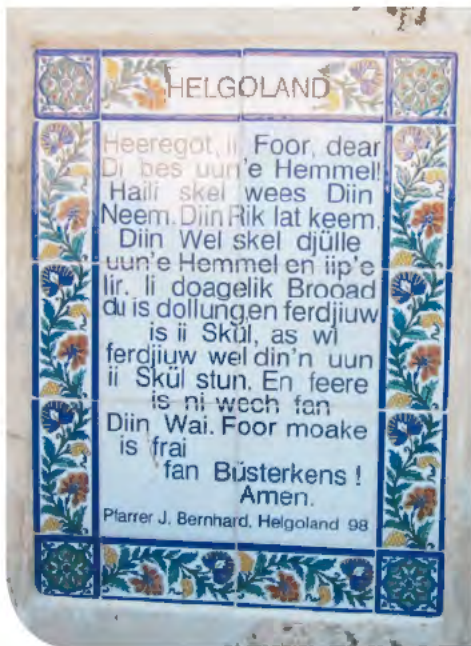 HELGOLAND
Heeregot, ii Foor, dear
Di bes uun'e Hemmel!
Haili skel wees Diin
Neem. Diin Rik lat keem,
Diin Wel skel djülle
uun'e Hemmel en iip'e
Iir. Ii doagelik Brooad
du is dollung, en ferdjiuw
is ii Skül, as wi
ferdjiuw wel din'n uun
ii Skül stun. En feere
is ni wech fan
Diin Wai. Foor moake
is frai
fan Büsterkens !
Amen.
Pfarrer J. Bernhard, Helgoland 98